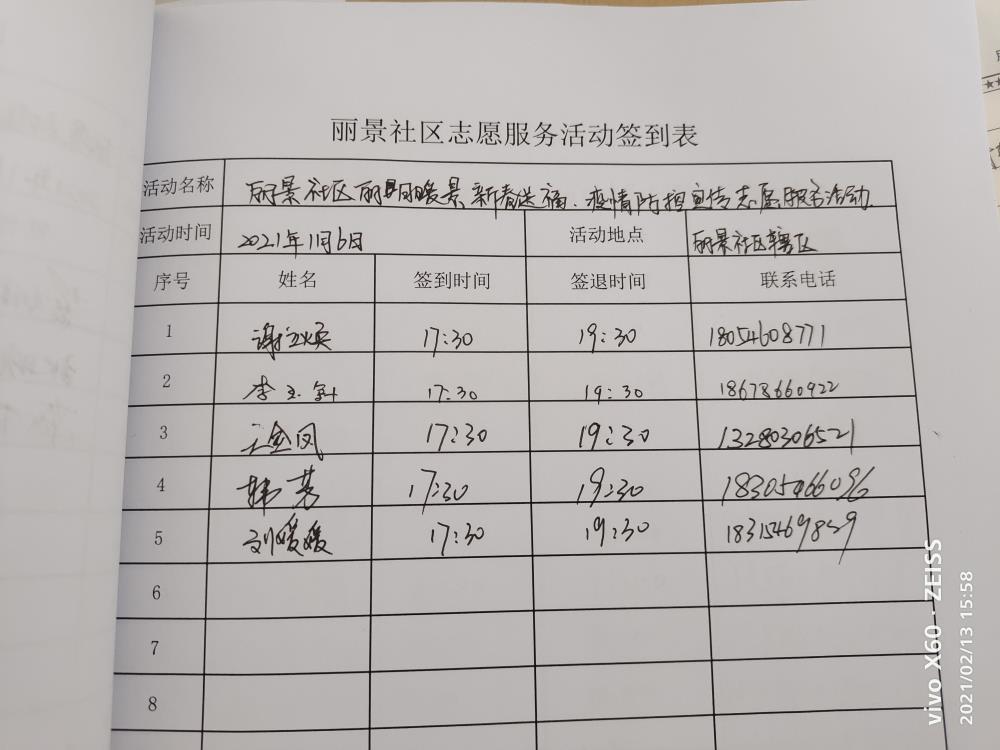 丽景社区志愿服务活动签到表
活动名称 丽景社区丽日暖景新春送福、疫情防控宣传志愿服务活动
活动时间 2021年1月6日 活动地点 丽景社区辖区
序号 姓名 签到时间 签退时间 联系电话
1 谢立焕 17:30 19:30 18054608771
2 李玉 17:30 19:30 18678660922
3 王金凤 17:30 19:30 13280306521
4 韩芳 17:30 19:30 18305466096
5 刘媛媛 17:30 19:30 18315469859
6
7
8
vivo X60 · ZEISS
2021/02/13 15:58